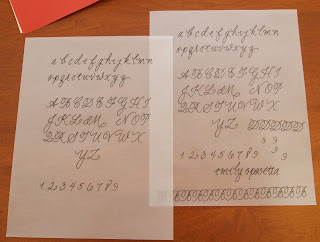 abcdefghijklmn
opqrstuvwxyz
ABCDEFGHI
JKLMNOP
QRSTUVWX
YZ
1 2 3 4 5 6 7 8 9
abcdefghijklmn
opqrstuvwxyz
ABCDEFGHI
JKLMNOP
QRSTUVWX
YZ
1 2 3 4 5 6 7 8 9
9
9
9